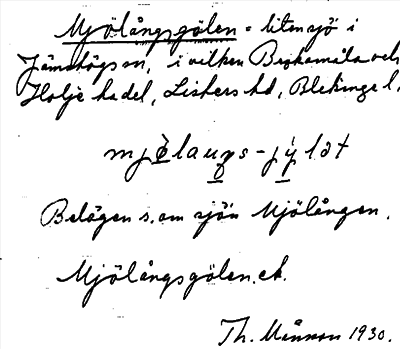 Mjölångsgölen = liten sjö i
Jämshögs sn, i vilken Brokamåla och
Holje ha del, Listers hd, Blekinge l.
Belägen s. om sjön Mjölången.
Mjölångsgölen. ek.
Th. 1930.